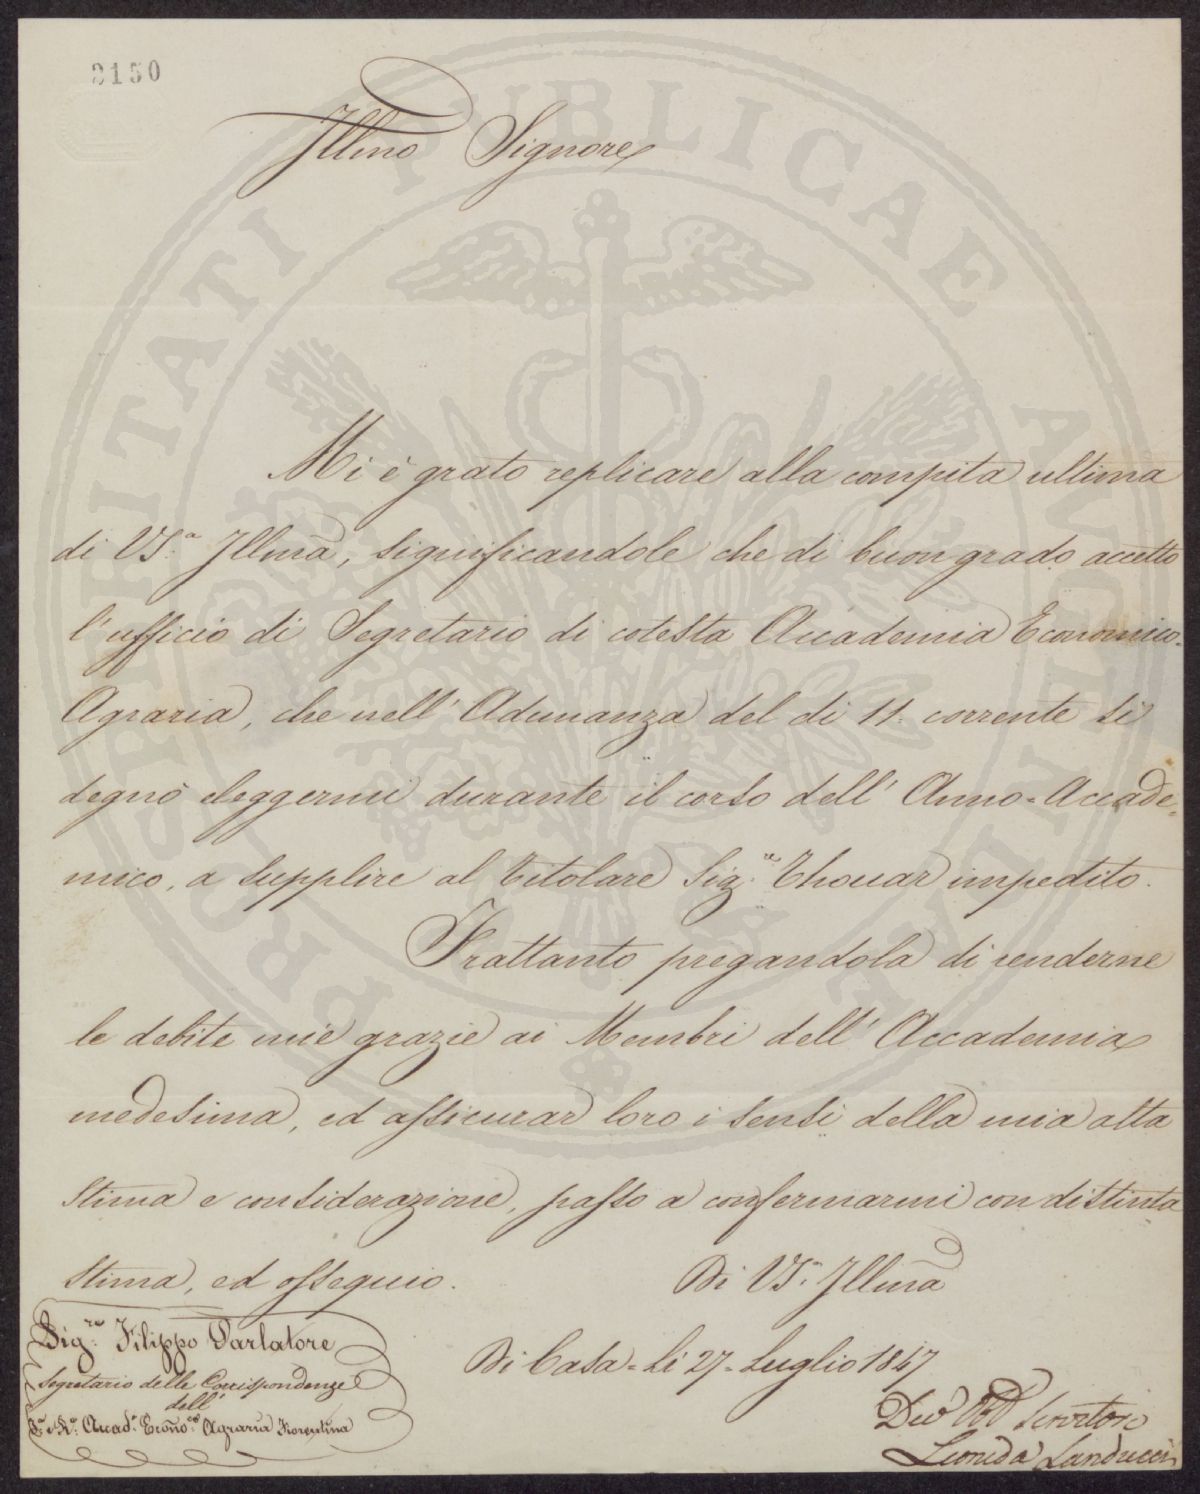 2150
Illmo Signore
Mi è grato replicare alla compita ultima
di VS.a Illma, significandole che di buon grado accetto
l'ufficio di Segretario di cotesta Accademia Economico-
Agraria, che nell'Adunanza del dì 11. corrente si
degnò eleggermi durante il corso dell'Anno-Accade-
mico, a supplire al Titolare Sig.re Thouar impedito.
Frattanto pregandola di renderne
le debite mie grazie ai Membri dell'Accademia
medesima, ed assicurar loro i sensi della mia alta
stima e considerazione, passo a confermarmi con distinta
stima, ed ossequio.
Di VS.a Illma
Di Casa - Li 27 - Luglio 1847
Dev Obb Servitore
Leonida Landucci
Sig.re Filippo Parlatore
Segretario delle Corrispondenze
dell'
I.a e R.a Accad.a Econo.ca Agraria Fiorentina
PROSPERITATI PUBLICAE AUGENDAE